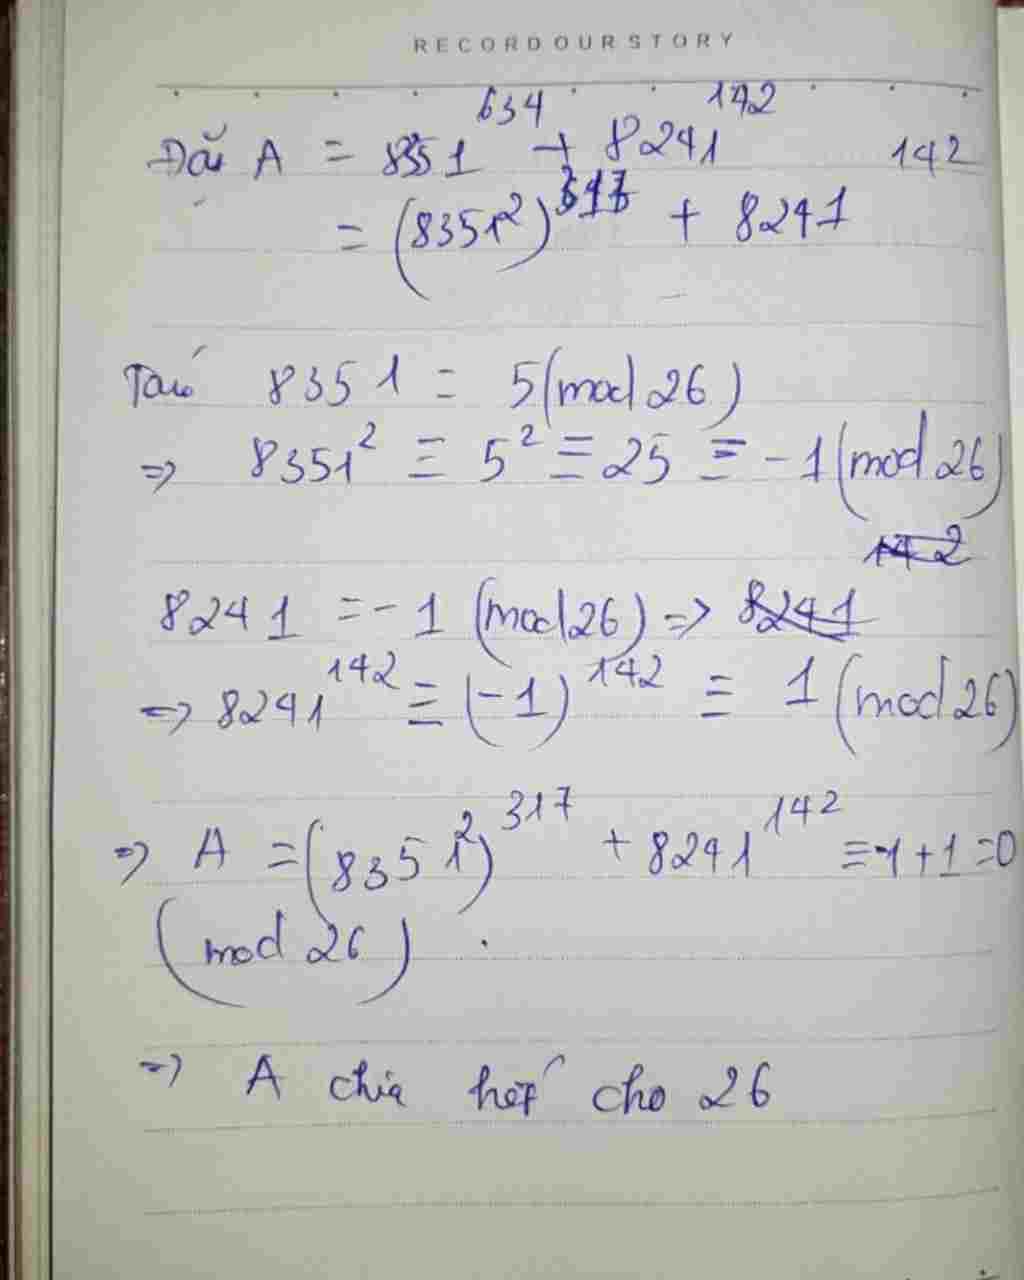 RECORD OUR STORY
Đặt A = 8351^634 + 8241^142
= (8351^2)^317 + 8241^142
Ta có 8351 ≡ 5 (mod 26)
=> 8351^2 ≡ 5^2 ≡ 25 ≡ -1 (mod 26)
8241 ≡ -1 (mod 26) => 8241^142
=> 8241^142 ≡ (-1)^142 ≡ 1 (mod 26)
=> A = (8351^2)^317 + 8241^142 ≡ -1 + 1 = 0
(mod 26).
=> A chia hết cho 26